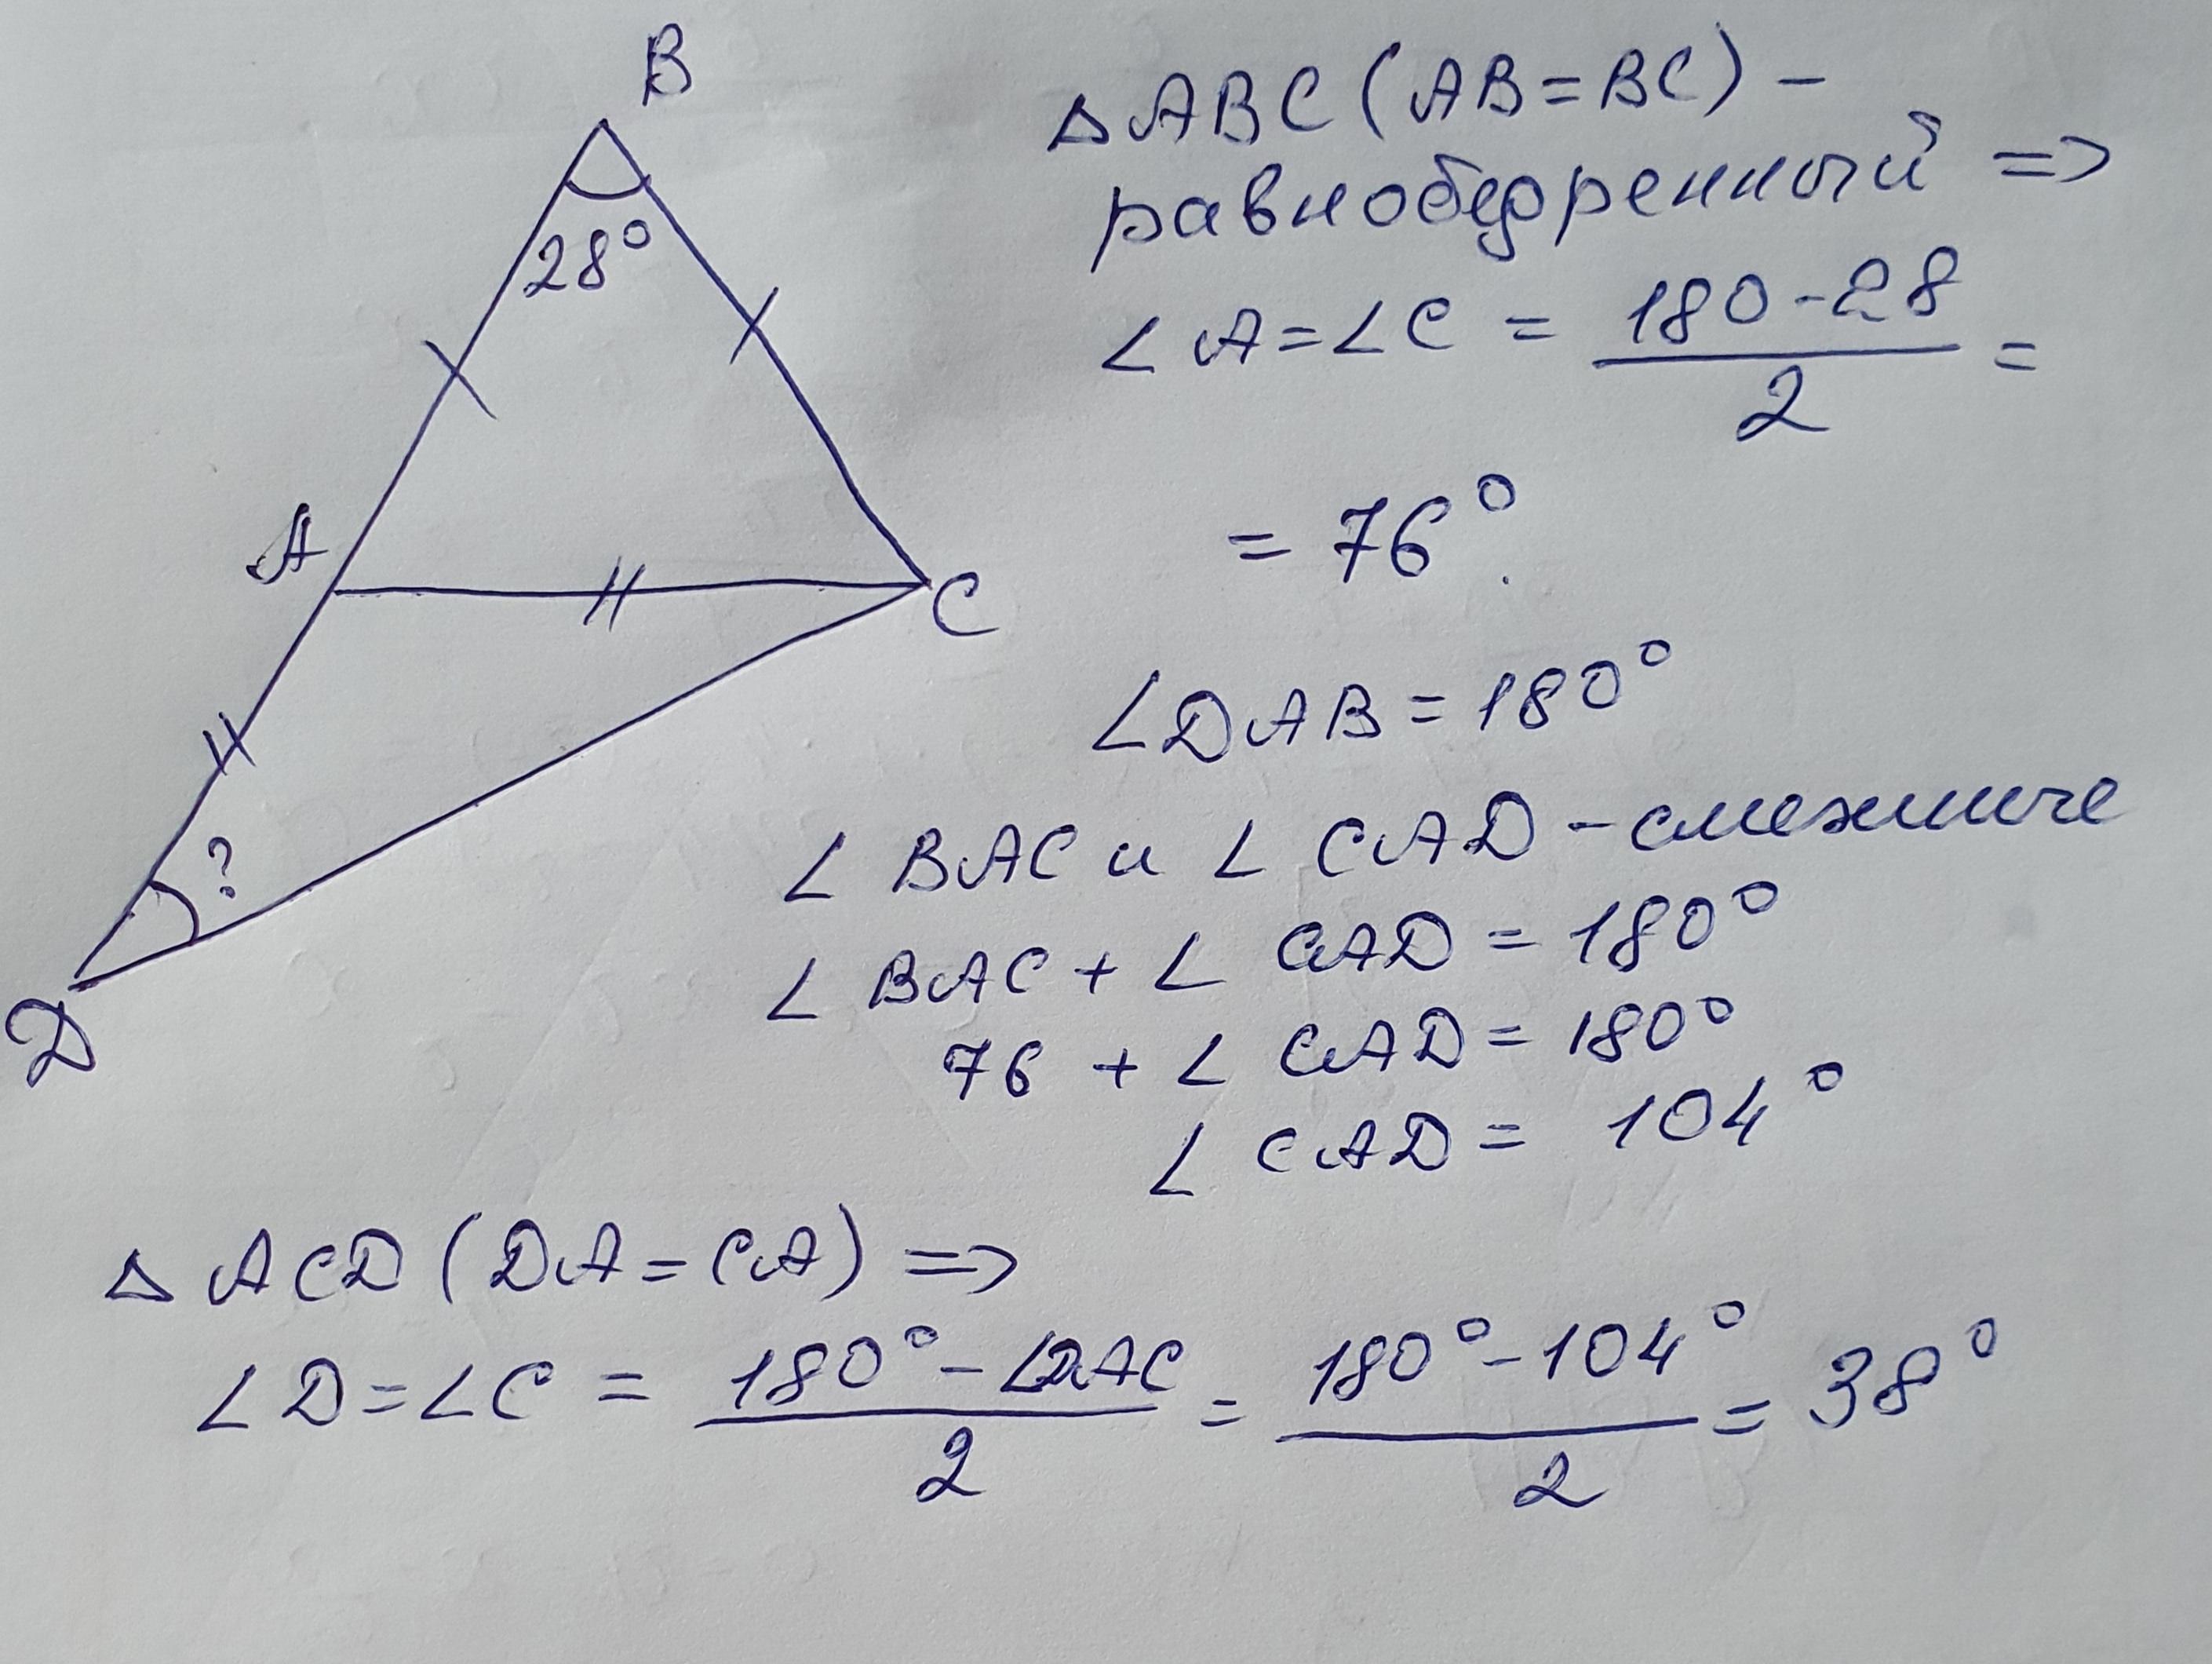 B
28°
A
C
?
D
△ABC (AB=BC) –
равнобедренный =>
∠A=∠C = (180-28)/2 =
= 76°.
∠DAB=180°
∠BAC и ∠CAD – смежные
∠BAC + ∠CAD = 180°
76 + ∠CAD = 180°
∠CAD = 104°
△ACD (DA=CA) =>
∠D=∠C = (180° – ∠DAC)/2 = (180° – 104°)/2 = 38°